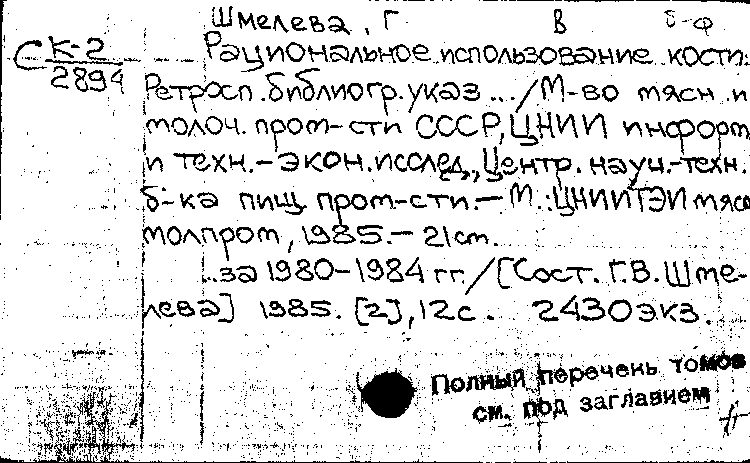 Шмелева, Г В б-ф
СК-2
2894
Рациональное использование кости:
Ретросп. библиогр. указ .../М-во мясн. и
молоч. пром-сти СССР, ЦНИИ информ
и техн.-экон. исслед., Центр. науч.-техн.
б-ка пищ. пром-сти.— М.: ЦНИИТЭИ мясо
молпром, 1985.— 21 см.
...за 1980-1984 гг. / [Сост. Г.В. Шме-
лева] 1985. [2], 12 с. 2430 экз.
Полный перечень томов
см. под заглавием